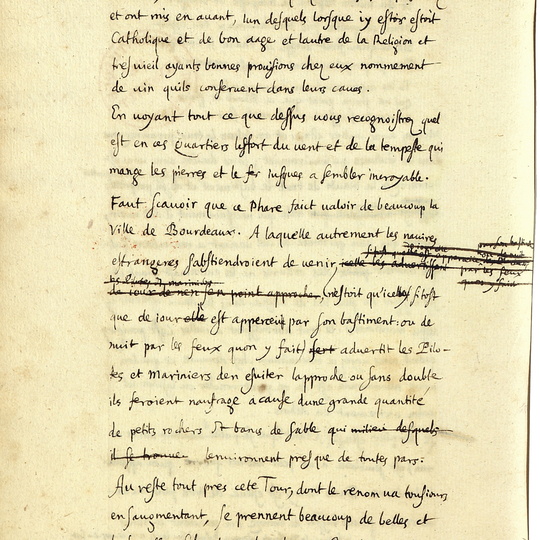 et ont mis en auant, lun desquels lorsque iy estois estoit
Catholique et de bon aage et lautre de la Religion et
tresuieil ayants bonnes prouisions chez eux nommement
de vin quils conseruent dans leurs caues.
En voyant tout ce que dessus vous recognoistrez quel
est en ces quartiers leffort du vent et de la tempeste qui
mange les pierres et le fer iusques a sembler incroyable.
Faut scauoir que ce Phare faict ualoir de beaucoup la
Ville de Bourdeaux. A laquelle autrement les nauires
estrangeres sabstiendroient de venir, icelle les aduertissant
de iour de nen point approcher, nestoit qu'icelluy si tost
que de iour elle est apperceue par son bastiment: ou de
nuit par les feux quon y fait) sert aduertit les Pilo-
tes et Mariniers den esuiter lapproche ou sans double
ils feroient naufrage a cause dune grande quantité
de petits rochers et bancs de sable qui milieu desquels
il se trouue lenuironnent presque de toutes pars:
Au reste tout pres cete Tour, dont le renom ua tousiours
en saugmentant, se prennent beaucoup de belles et
par les feux